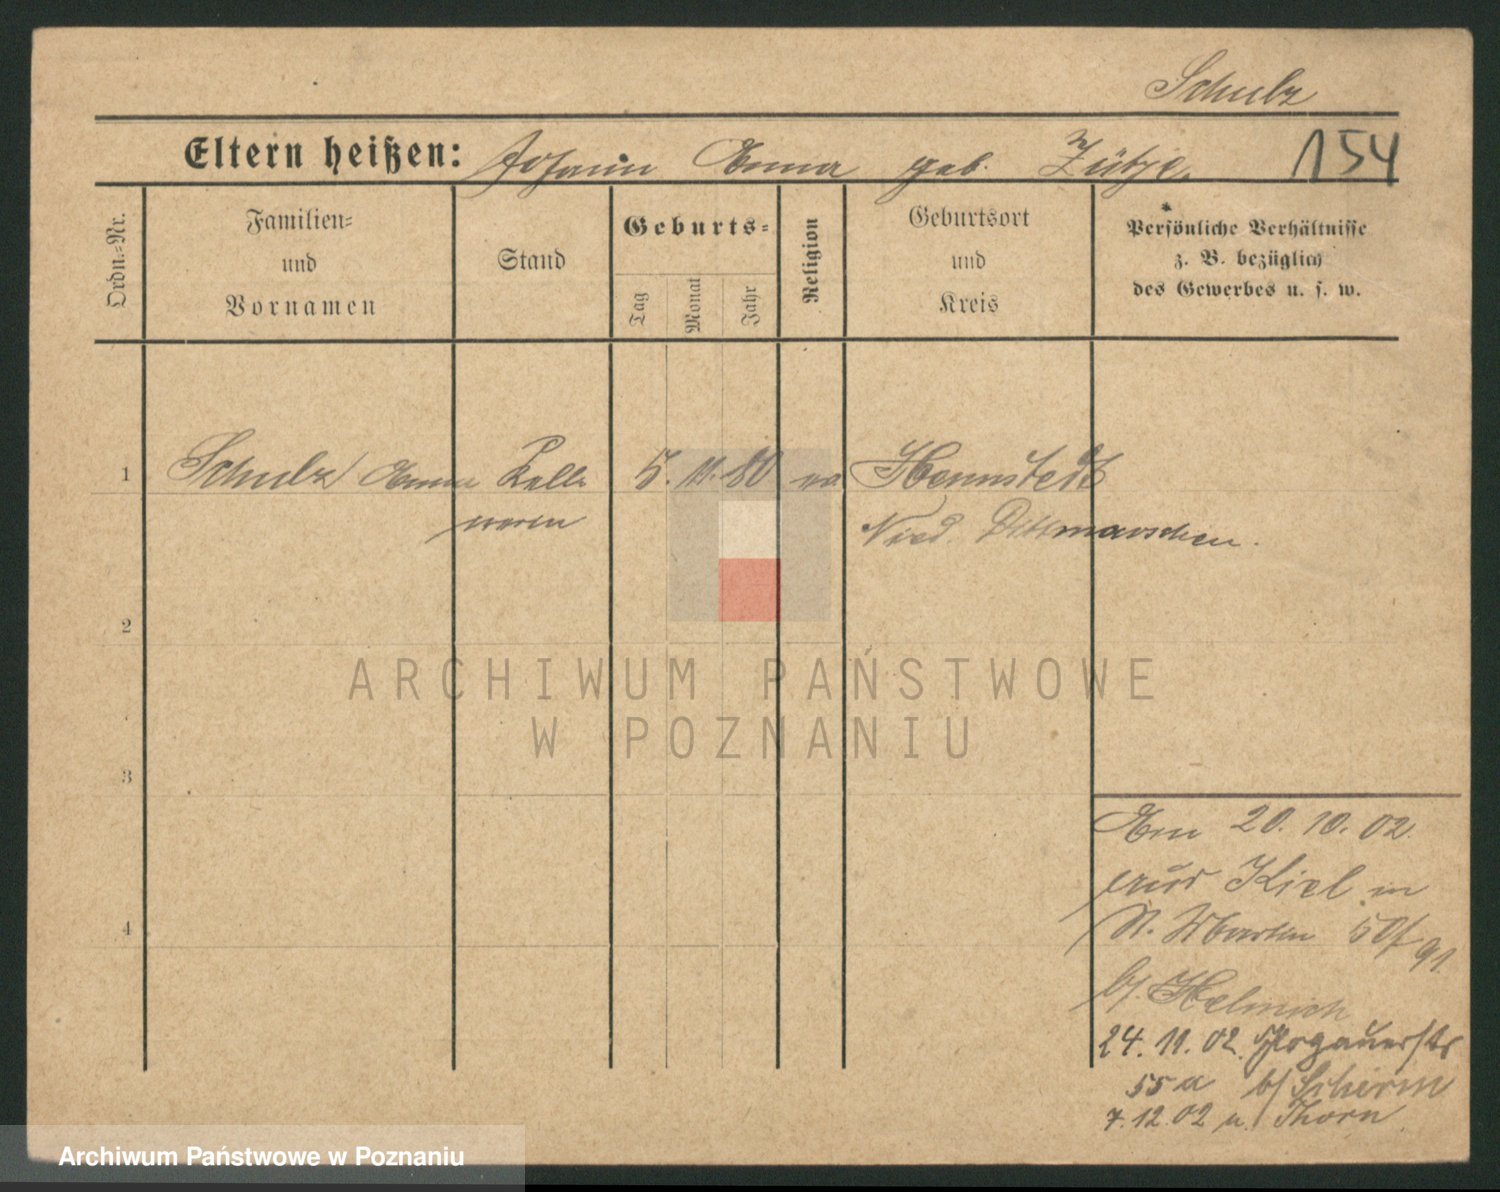 Schulz
Eltern heißen: Johann Anna geb. 154
Ordn.-Nr.
Familien-
und
Vornamen
Stand
Geburts-
Tag
Monat
Jahr
Religion
Geburtsort
und
Kreis
Persönliche Verhältnisse
z. B. bezüglich
des Gewerbes u. s. w.
1 Schulz Anna Kell 5. 11. 80 ev Hennstedt
nerin Nord. Dittmarschen.
2
3
4
Am 20. 10. 02.
aus Kiel in
St. Martin 50/91
b/ Helmich
24. 11. 02. Glogauerstr
55a b/ Schirm
7. 12. 02 n. Thorn
ARCHIWUM PAŃSTWOWE
W POZNANIU
Archiwum Państwowe w Poznaniu